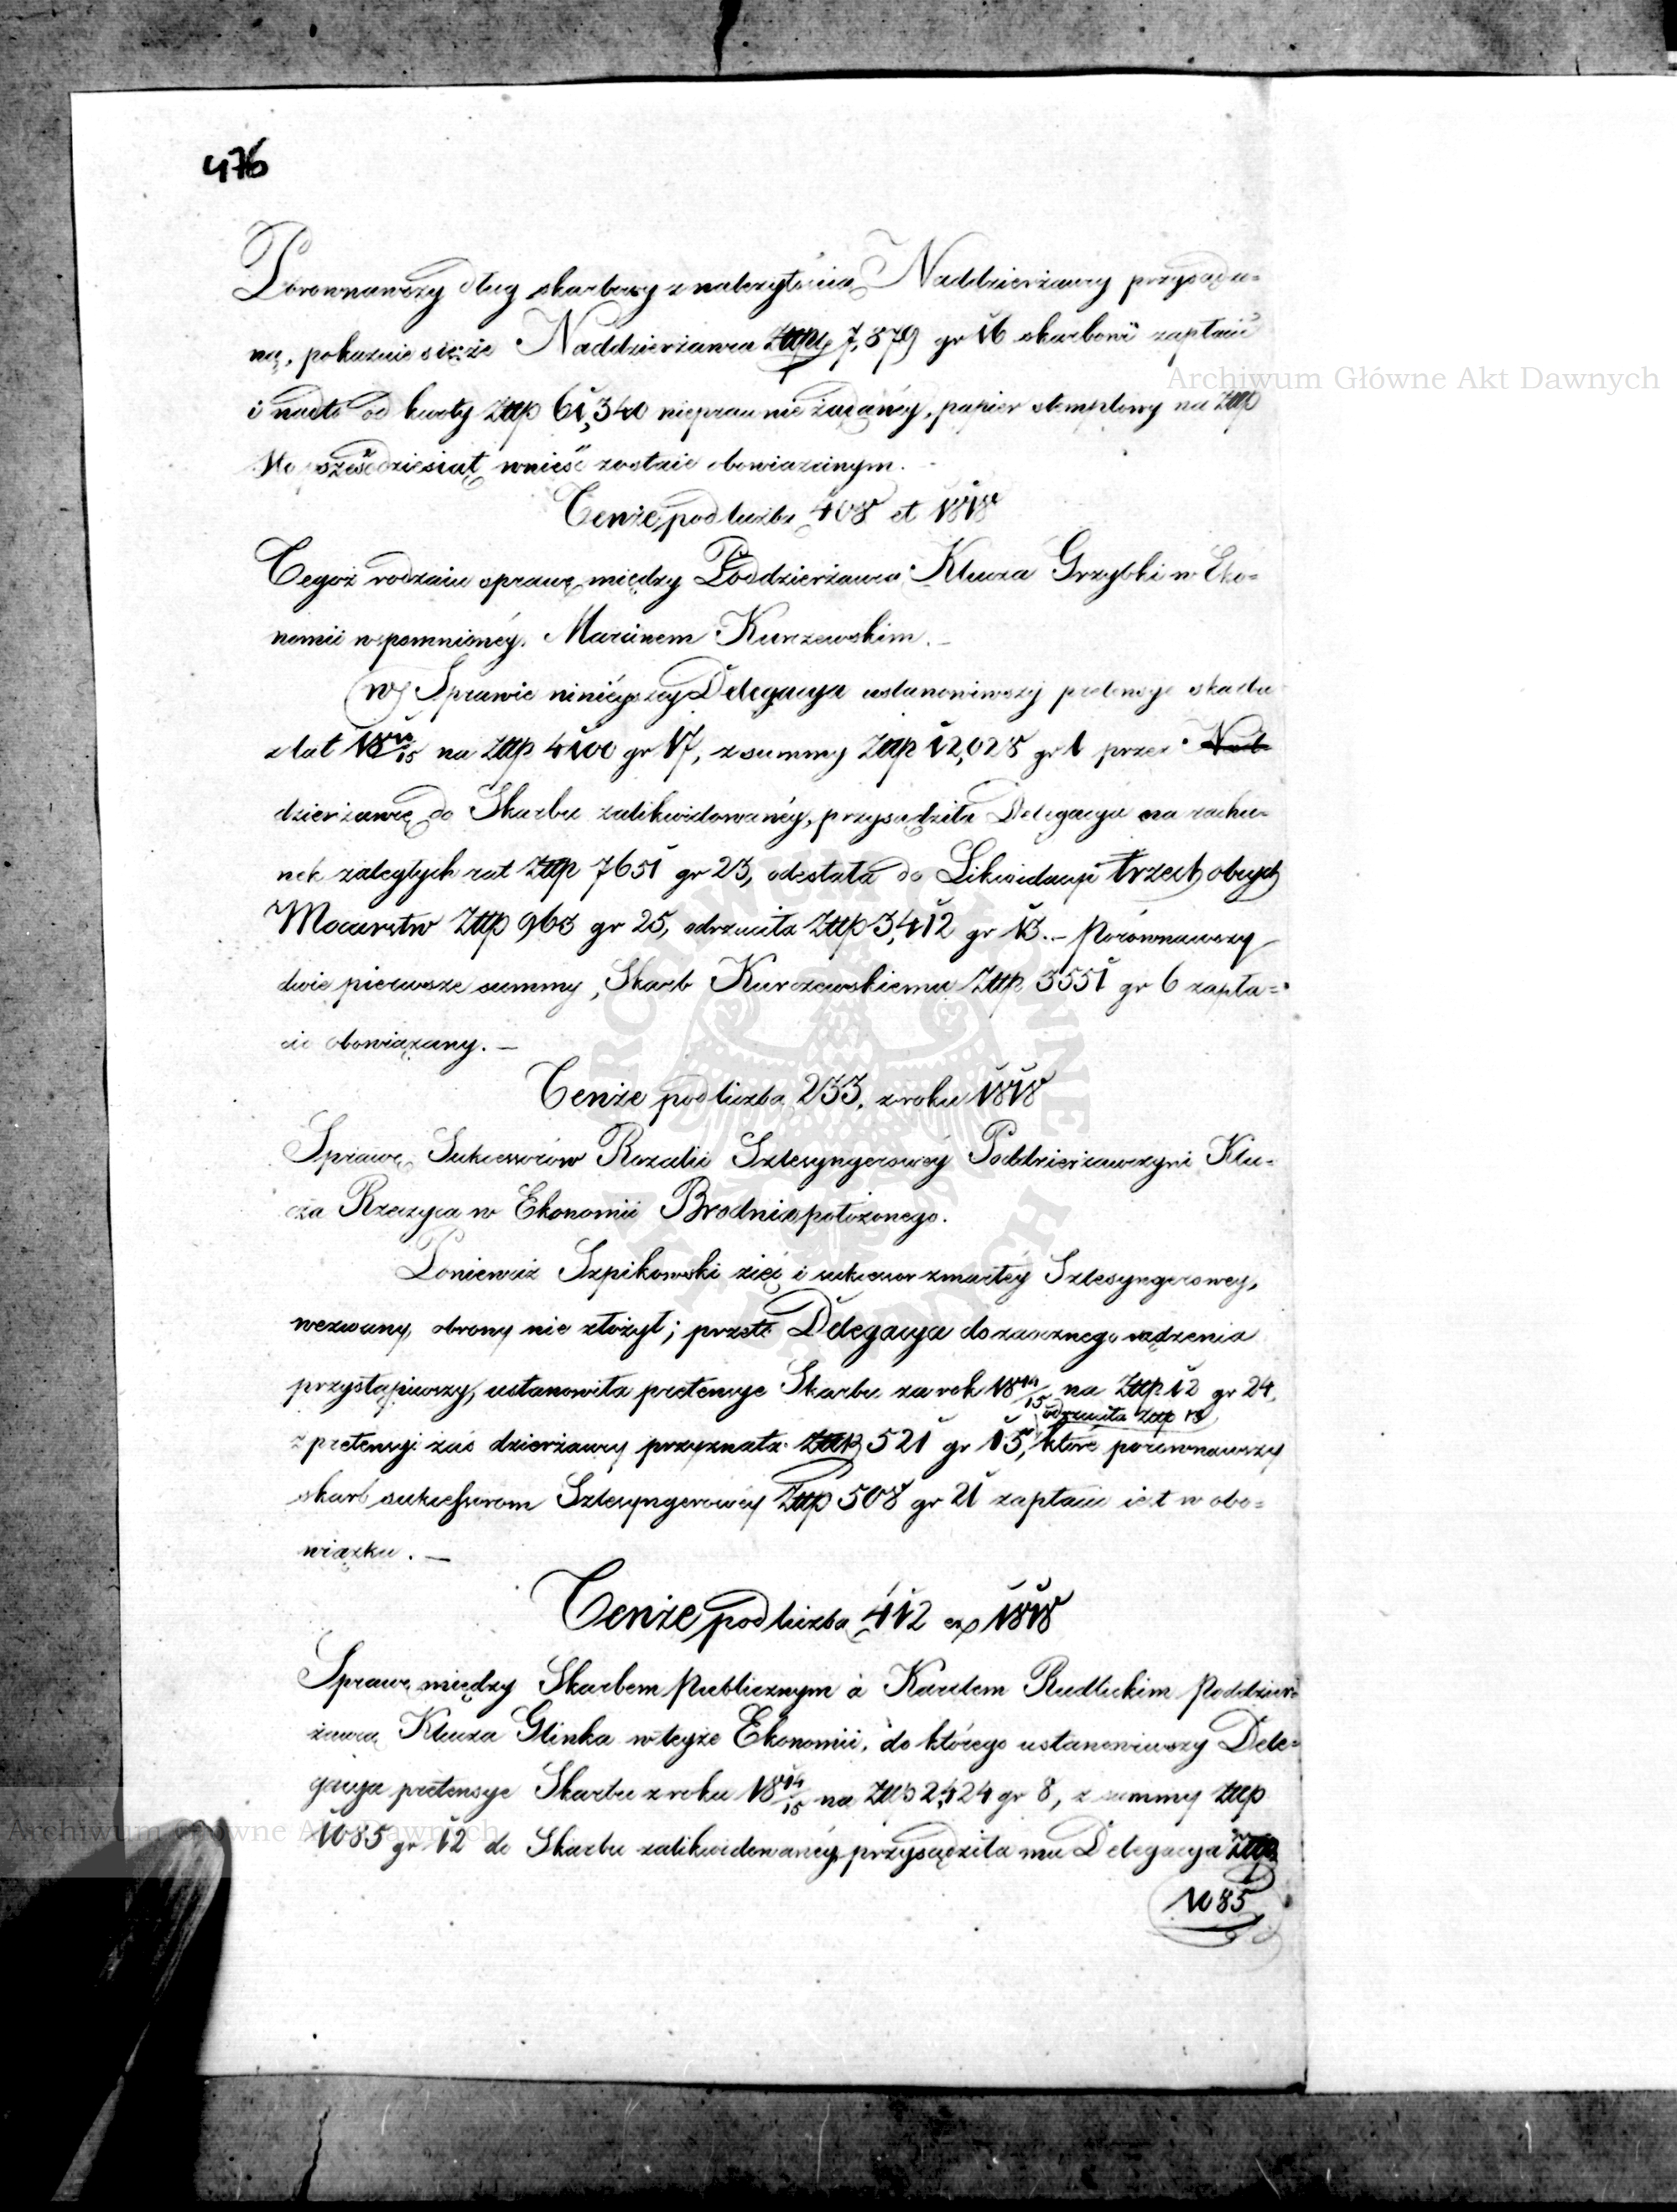 476
Porównawszy dług skarbowy z należytością Naddzierżawcy przysądzo=
ną, pokazuie się że Naddzierżawca Złtp 7,879 gr 16 skarbowi zapłacić
i nadto od kwoty Złtp 61,340 nieprawnie żądanéy, papier stemplowy na Złtp
sto sześćdziesiąt wnieść zostaie obowiązanym.
Tenże pod liczbą 408 et 1818
Tegoż rodzaiu sprawę między Poddzierżawcą Klucza Grzybki w Eko=
nomii wspomnionéy. Marcinem Kurzewskim. —
W Sprawie ninieyszey Delegacya ustanowiwszy pretensye skarbu
z lat 18 14/15 na Złtp 4100 gr 17, z summy Złtp 12,028 gr 1 przez Nad-
dzierżawcę do Skarbu zalikwidowanéy, przysądziła Delegacya na rachu=
nek zaległych rat Złtp 7651 gr 23, odesłała do Likwidacyi trzech obcych
Mocarstw Złtp 963 gr 25, odrzuciła Złtp 3,412 gr 13. – Porównawszy
dwie pierwsze summy, Skarb Kurczewskiemu Złtp 3551 gr 6 zapła=
cić obowiązany. —
Tenże pod liczbą 233. z roku 1818
Sprawę Sukcessorów Rozalii Szlesyngerowéy Poddzierżawczyni Klu=
cza Rzeczyca w Ekonomii Brodnia położonego.
Ponieważ Szpikowski zięć i sukcessor zmarłéy Szlesyngerowey,
wezwany obrony nie złożył; przeto Delegacya do zaocznego sądzenia
przystąpiwszy, ustanowiła pretensye Skarbu za rok 18 14/15 na Złtp 12 gr 24,
odrzuciła Złtp 13
z pretensyi zaś dzierżawcy przyznała Złtp 521 gr 15, które porównawszy
skarb sukcessorom Szlesyngerowéy Złtp 508 gr 21 zapłacić iest w obo=
wiązku. —
Tenże pod liczbą 412 ex 1818
Sprawę między Skarbem Publicznym à Karolem Rudlickim Poddzier=
żawcą Klucza Glinka w teyże Ekonomii, do którego ustanowiwszy Dele=
gacya pretensye Skarbu z roku 18 14/15 na Złtp 2,424 gr 8, z summy Złtp
1085 gr 12 do Skarbu zalikwidowanéy przysądziła mu Delegacya Złtp
1085
Archiwum Główne Akt Dawnych
Archiwum Główne Akt Dawnych
ARCHIWUM GŁÓWNE AKT DAWNYCH